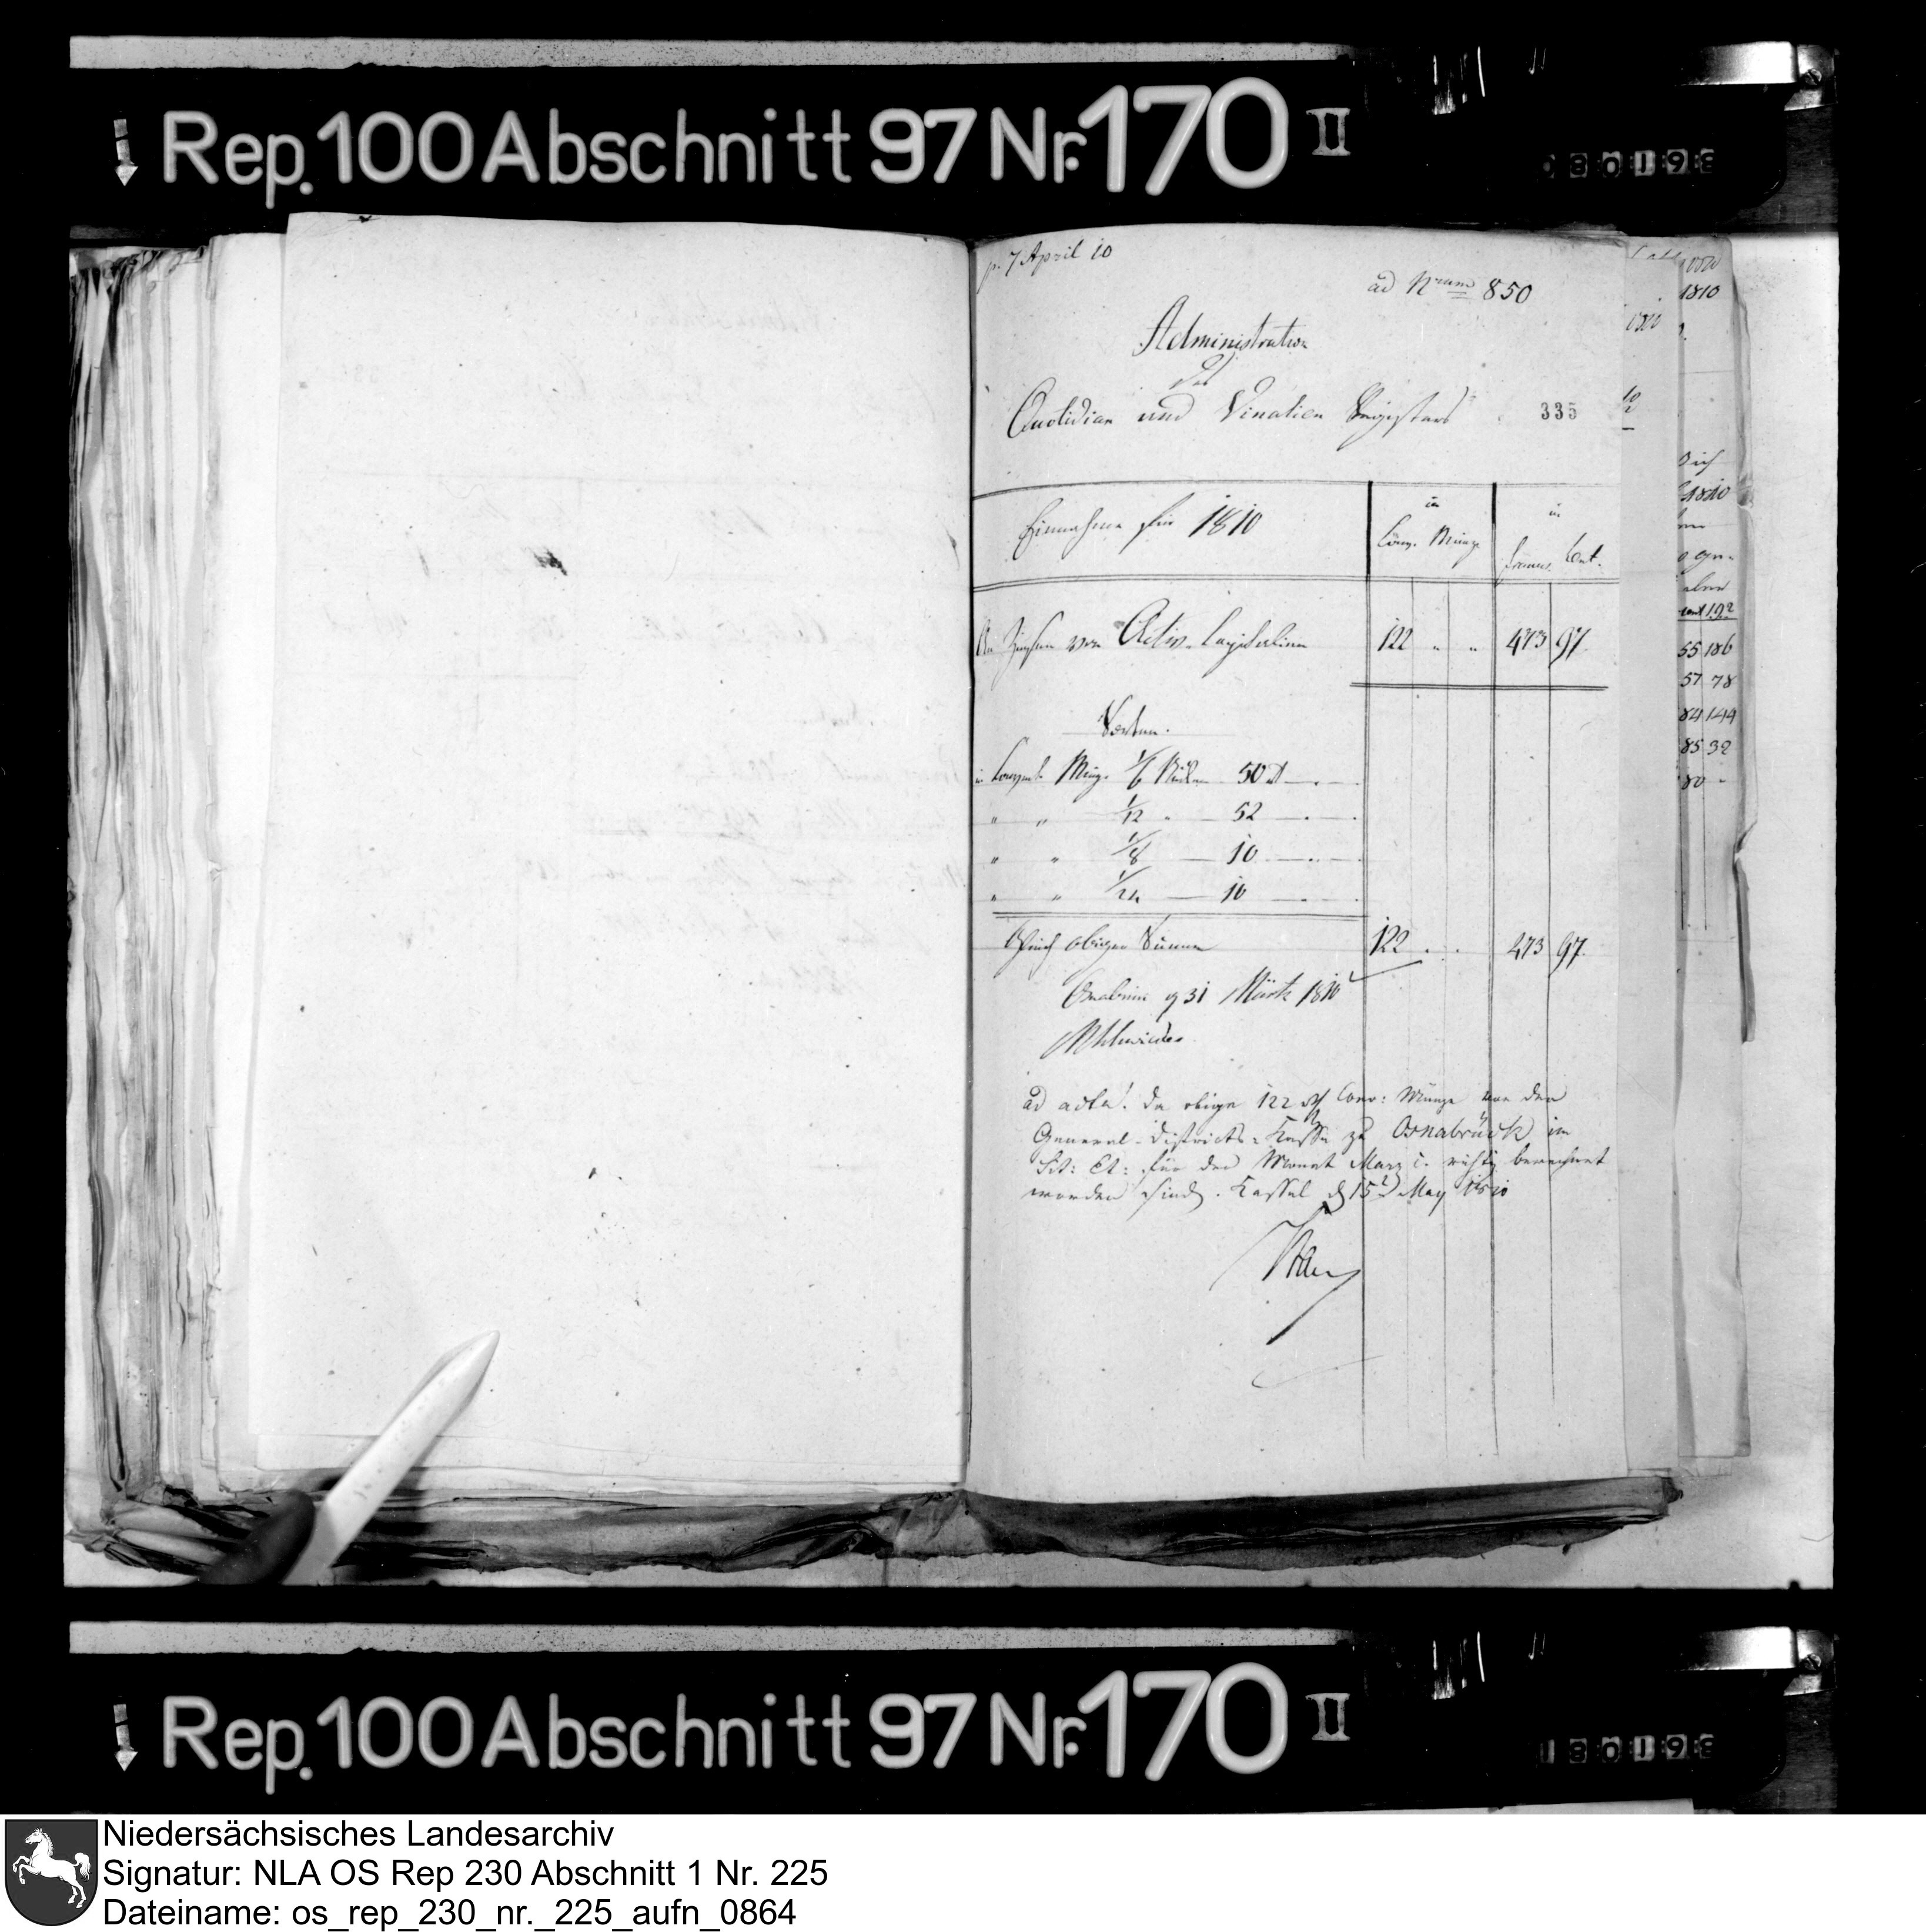 Rep. 100 Abschnitt 97 Nr. 170 II
p. 7 April 10
ad Nrum 850
Administration
des
Quotidian und Vinalien Registers
335
Einnahme für 1810
in
Conv. Münze
in
Francs. Cent.
An Zinsen von Activ-Capitalien 122 " " 473 97
Sorten.
in Convent. Münze 1/6 Stücken 50
" " 1/12 " 52
" " 1/8 10
" " 1/24 10
Obige Summe 122 . . 473 97
31 März 1810
ad acta! da obige 122 Conv: Münze von der
General-Districts-Kasse zu Osnabrück im
Sit: Et: für den Monat Marz c. richtig berechnet
worden sind. Kassel d 15 May 1810
1810
1810
55 186
57 78
84 144
85 32
80
Rep. 100 Abschnitt 97 Nr. 170 II
Niedersächsisches Landesarchiv
Signatur: NLA OS Rep 230 Abschnitt 1 Nr. 225
Dateiname: os_rep_230_nr._225_aufn_0864